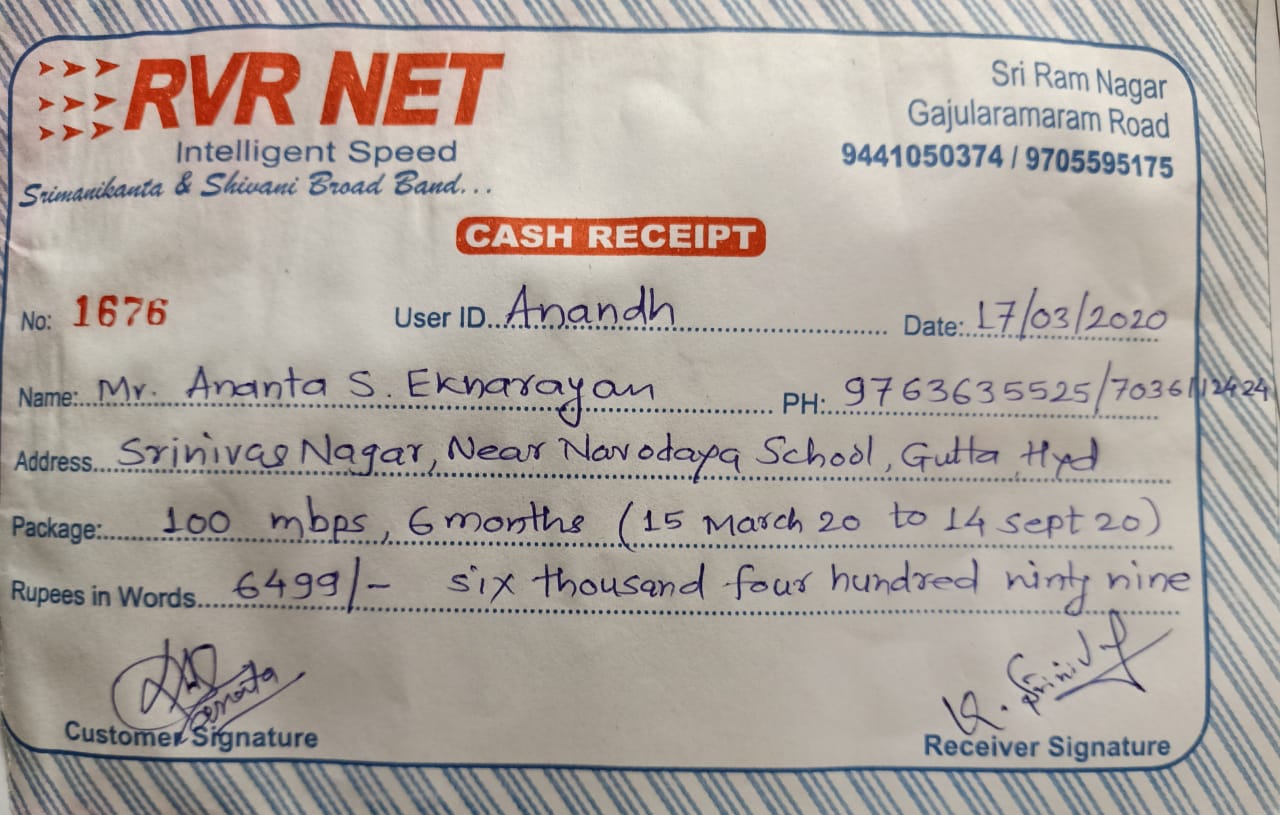 RVR NET
Intelligent Speed
Srimanikanta & Shivani Broad Band...
Sri Ram Nagar
Gajularamaram Road
9441050374 / 9705595175
CASH RECEIPT
No: 1676 User ID Anandh Date: 17/03/2020
Name: Mr. Ananta S. Eknarayan PH: 9763635525/7036112424
Address Srinivas Nagar, Near Navodaya School, Gutta Hyd
Package: 100 mbps, 6 months (15 March 20 to 14 sept 20)
Rupees in Words 6499/- six thousand four hundred ninty nine
Ananta K. Srinivas
Customer Signature Receiver Signature